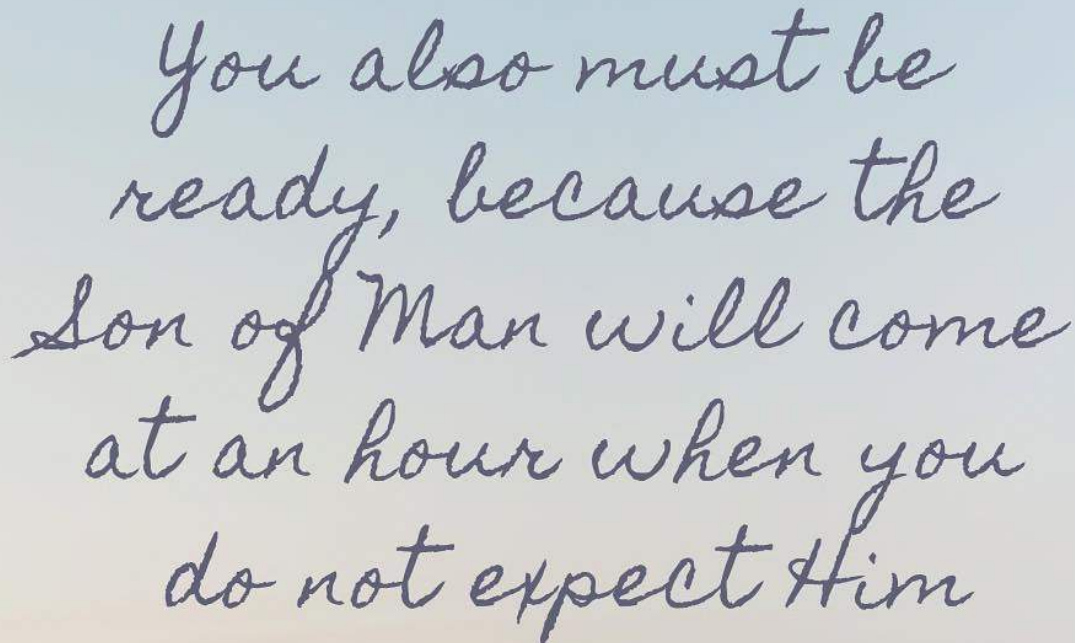 You also must be
ready, because the
Son of Man will come
at an hour when you
do not expect Him